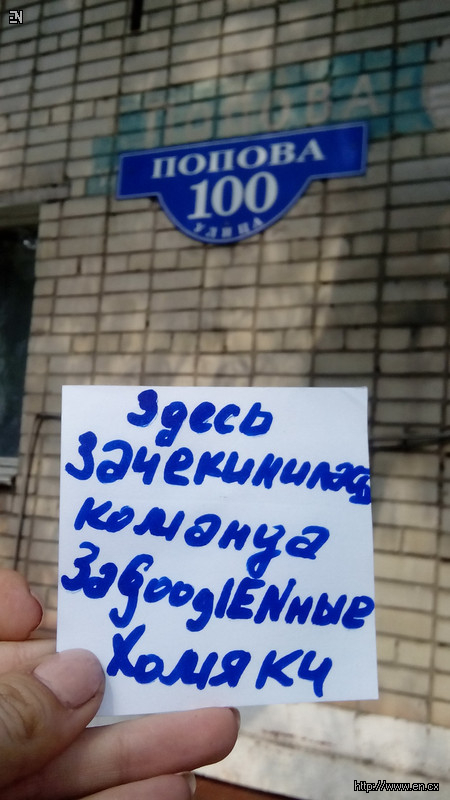 EN
ПОПОВА
ПОПОВА
100
УЛИЦА
Здесь
Зачекинилась
команда
ЗаGooglENные
Хомяки
http://www.en.cx